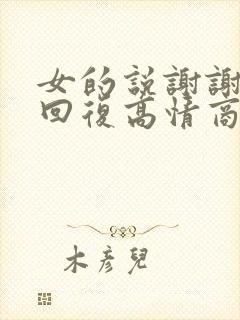 女的説謝謝
回復高情商
木彥兒